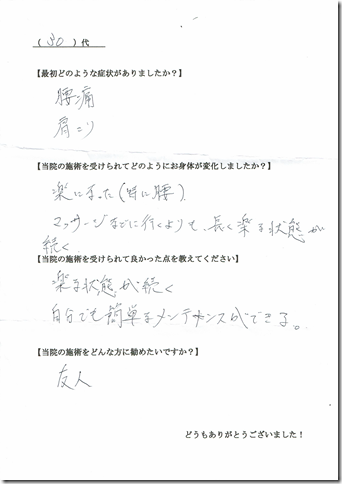 (30)代
【最初どのような症状がありましたか?】
腰痛
肩こり
【当院の施術を受けられてどのようにお身体が変化しましたか?】
楽になった(特に腰)
マッサージなどに行くよりも、長く楽な状態が
続く
【当院の施術を受けられて良かった点を教えてください】
楽な状態が続く
自分でも簡単なメンテナンスができる。
【当院の施術をどんな方に勧めたいですか?】
友人
どうもありがとうございました!